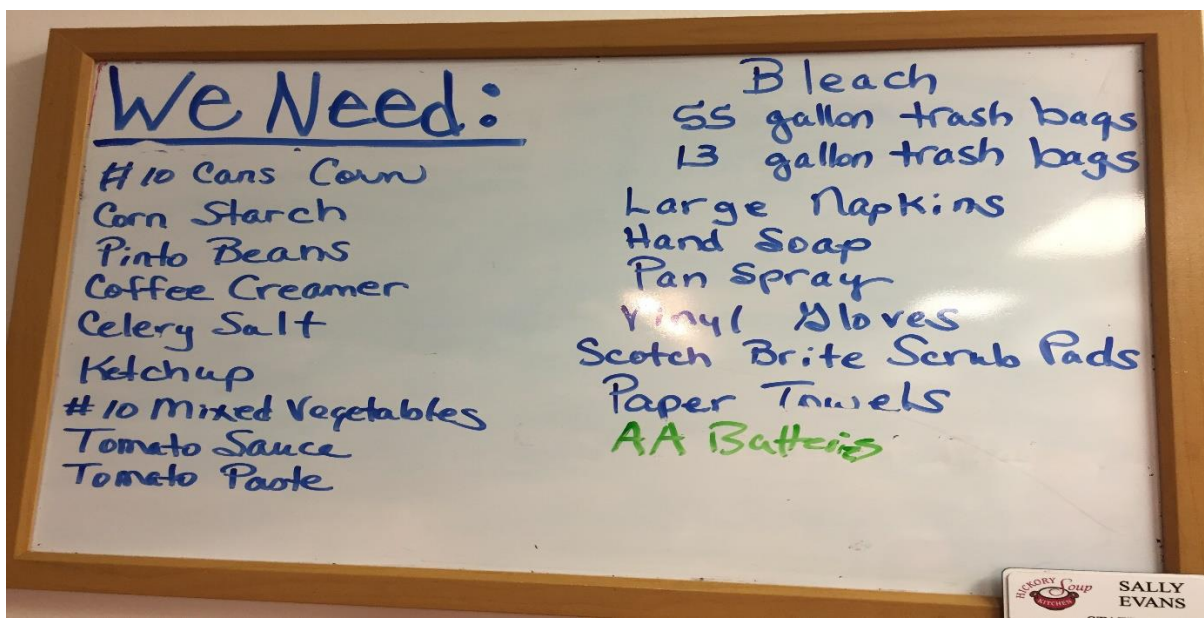 We Need:
#10 Cans Corn
Corn Starch
Pinto Beans
Coffee Creamer
Celery Salt
Ketchup
#10 Mixed Vegetables
Tomato Sauce
Tomato Paste
Bleach
55 gallon trash bags
13 gallon trash bags
Large Napkins
Hand Soap
Pan Spray
Vinyl Gloves
Scotch Brite Scrub Pads
Paper Towels
AA Batteries
HICKORY Soup
KITCHEN
SALLY
EVANS